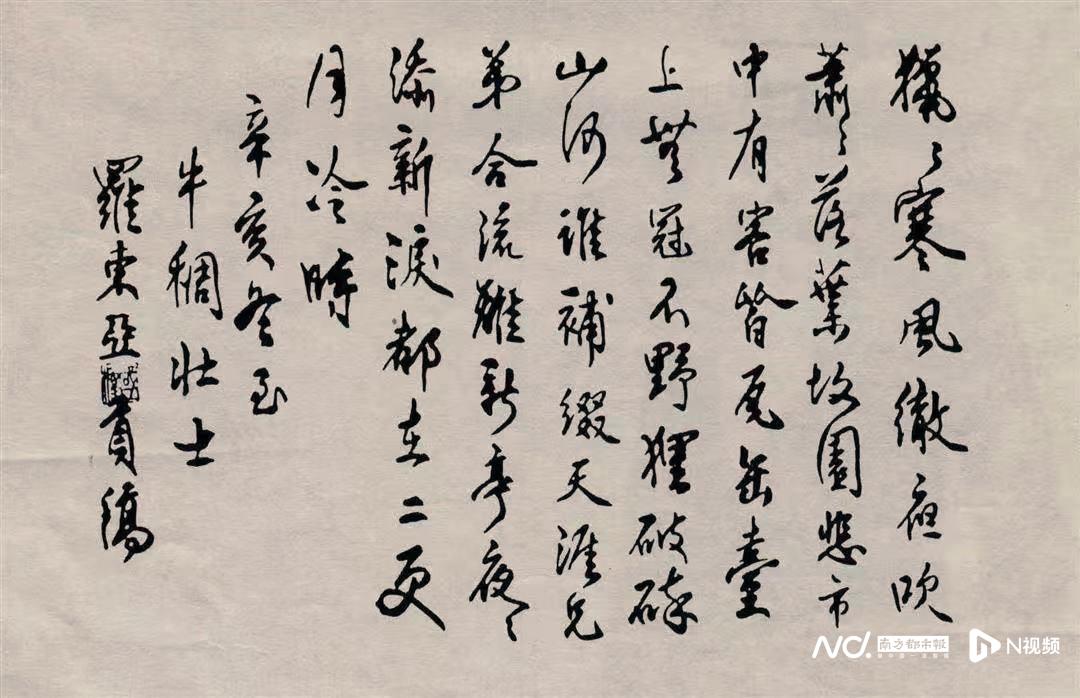 獵〻寒風徹夜吹
蕭〻落葉故園悲市
中有害皆瓦缶臺
上無冠不野狸破碎
山河誰補綴天涯兄
弟合流離新亭夜〻
添新淚都在二更
月冷時
辛亥冬至
牛稠壯士
羅東亞稿
ND. 南方都市報 N视频